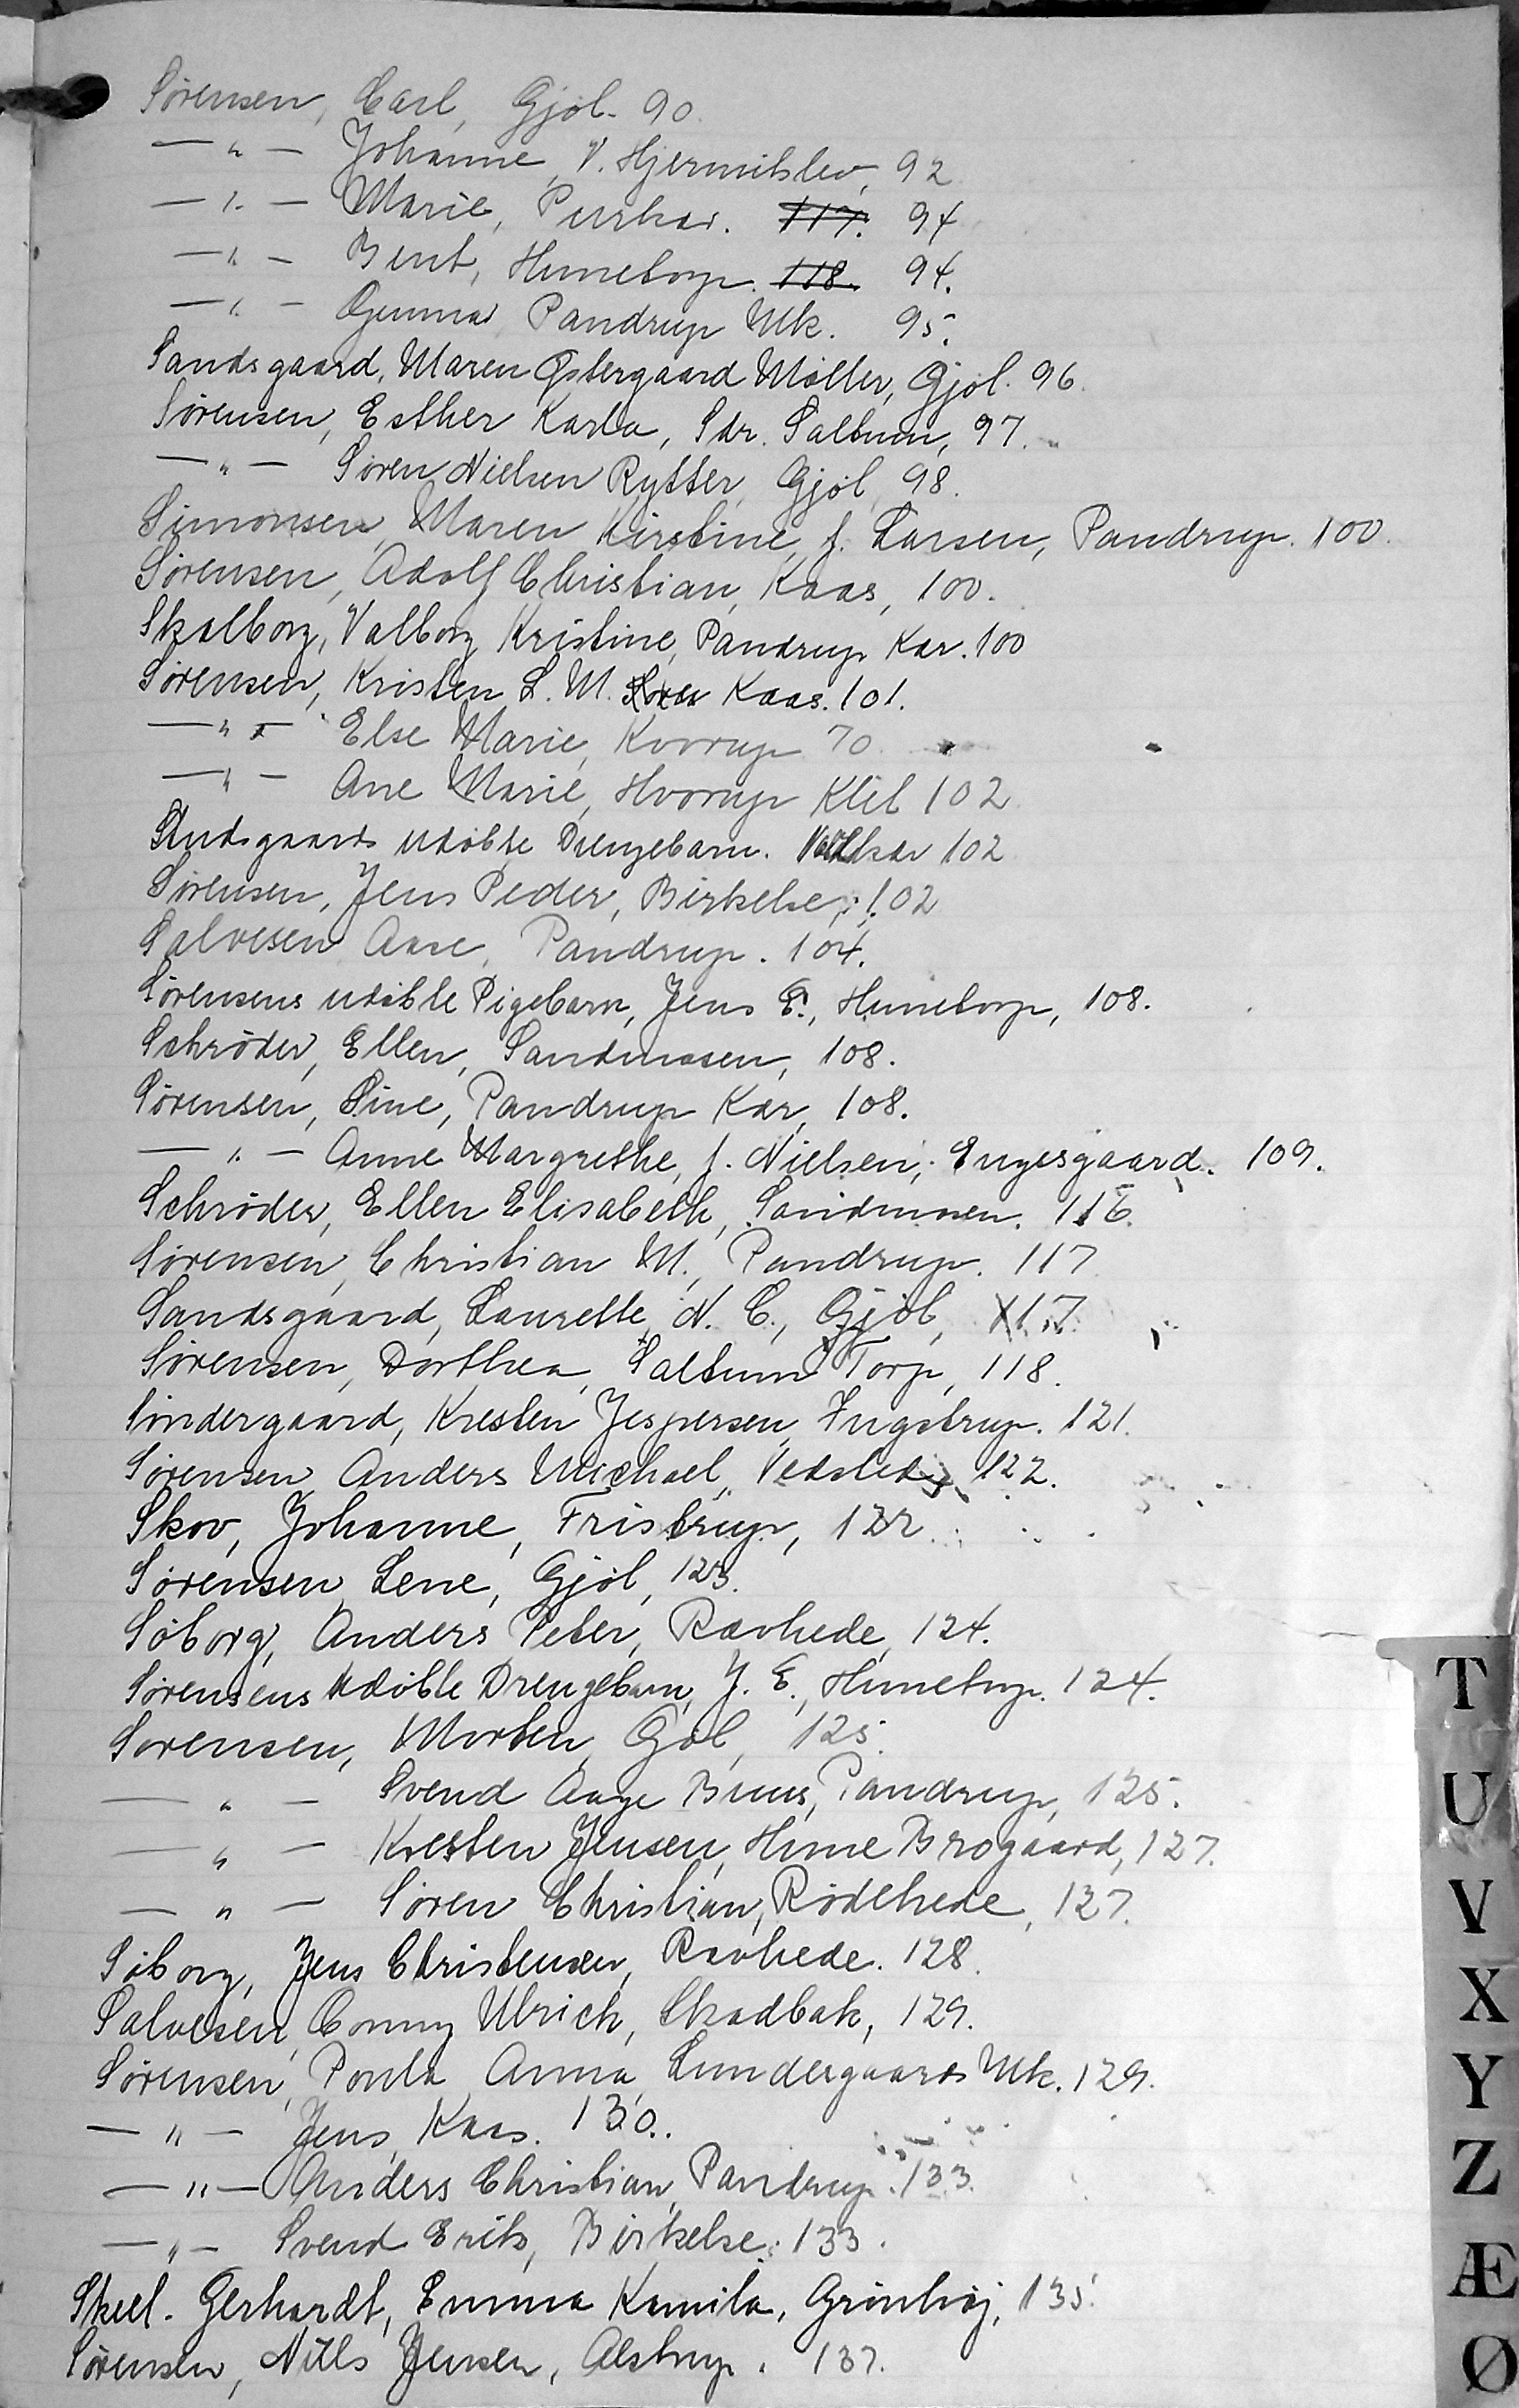 Sørensen, Carl, Gjøl. 90.
— „ — Johanne, V. Hjermitslev, 92
— „ — Marie, Purkær. 117. 94
— „ — Bent, Hunetorp. 118. 94.
— „ — Gunnar Pandrup Mk. 95.
Sandsgaard, Maren Østergaard Møller, Gjøl. 96.
Sørensen, Esther Karla, Sdr. Saltum, 97.
— „ — Søren Nielsen Rytter, Gjøl, 98.
Simonsen, Maren Kirstine, f. Larsen, Pandrup. 100.
Sørensen, Adolf Christian, Kaas, 100.
Skalborg, Valborg Kristine, Pandrup Kær. 100
Sørensen, Kristen L. M. Kaas. 101.
— „ — Else Marie, Kvorup 70
— „ — Ane Marie, Hvorup Klit 102
Studsgaards udøbte Drengebarn. 102
Sørensen, Jens Peder, Birkelse, 102
Salvesen Aase, Pandrup. 104.
Sørensens udøbte Pigebarn, Jens E., Hunetorp, 108.
Schrøder, Ellen, Sandmosen, 108.
Sørensen, Sine, Pandrup Kær, 108.
— „ — Anne Margrethe, f. Nielsen, Engesgaard. 109.
Schrøder, Ellen Elisabeth, Sandmosen. 116.
Sørensen, Christian M., Pandrup. 117
Sandsgaard, Laurette N. C., Gjøl, 117.
Sørensen, Dorthea, Saltum Torp, 118.
Søndergaard, Kresten Jespersen, Ingstrup. 121.
Sørensen, Anders Michael, Vedsted, 122.
Skov, Johanne, Fristrup, 122.
Sørensen, Lene, Gjøl, 123.
Søborg, Anders Peter, Ravhede, 124.
Sørensens udøbte Drengebarn, J. E., Hunetorp. 124.
Sørensen, Morten, Gøl, 125.
— „ — Svend Aage Buus, Pandrup, 125.
— „ — Kresten Jensen, Hune Brogaard, 127.
— „ — Søren Christian, Rødehede, 127.
Søborg, Jens Christensen, Ravhede. 128.
Salvesen, Conny Ulrich, Skadbak, 129.
Sørensen, Poula Anna, Lundergaards Mk. 129.
— „ — Jens, Kaas. 130.
— „ — Anders Christian, Pandrup. 133.
— „ — Svend Erik, Birkelse. 133.
Skeel. Gerhardt, Emma Kamila, Grønhøj, 135.
Sørensen, Niels Jensen, Alstrup. 137.
T
U
V
X
Y
Z
Æ
Ø